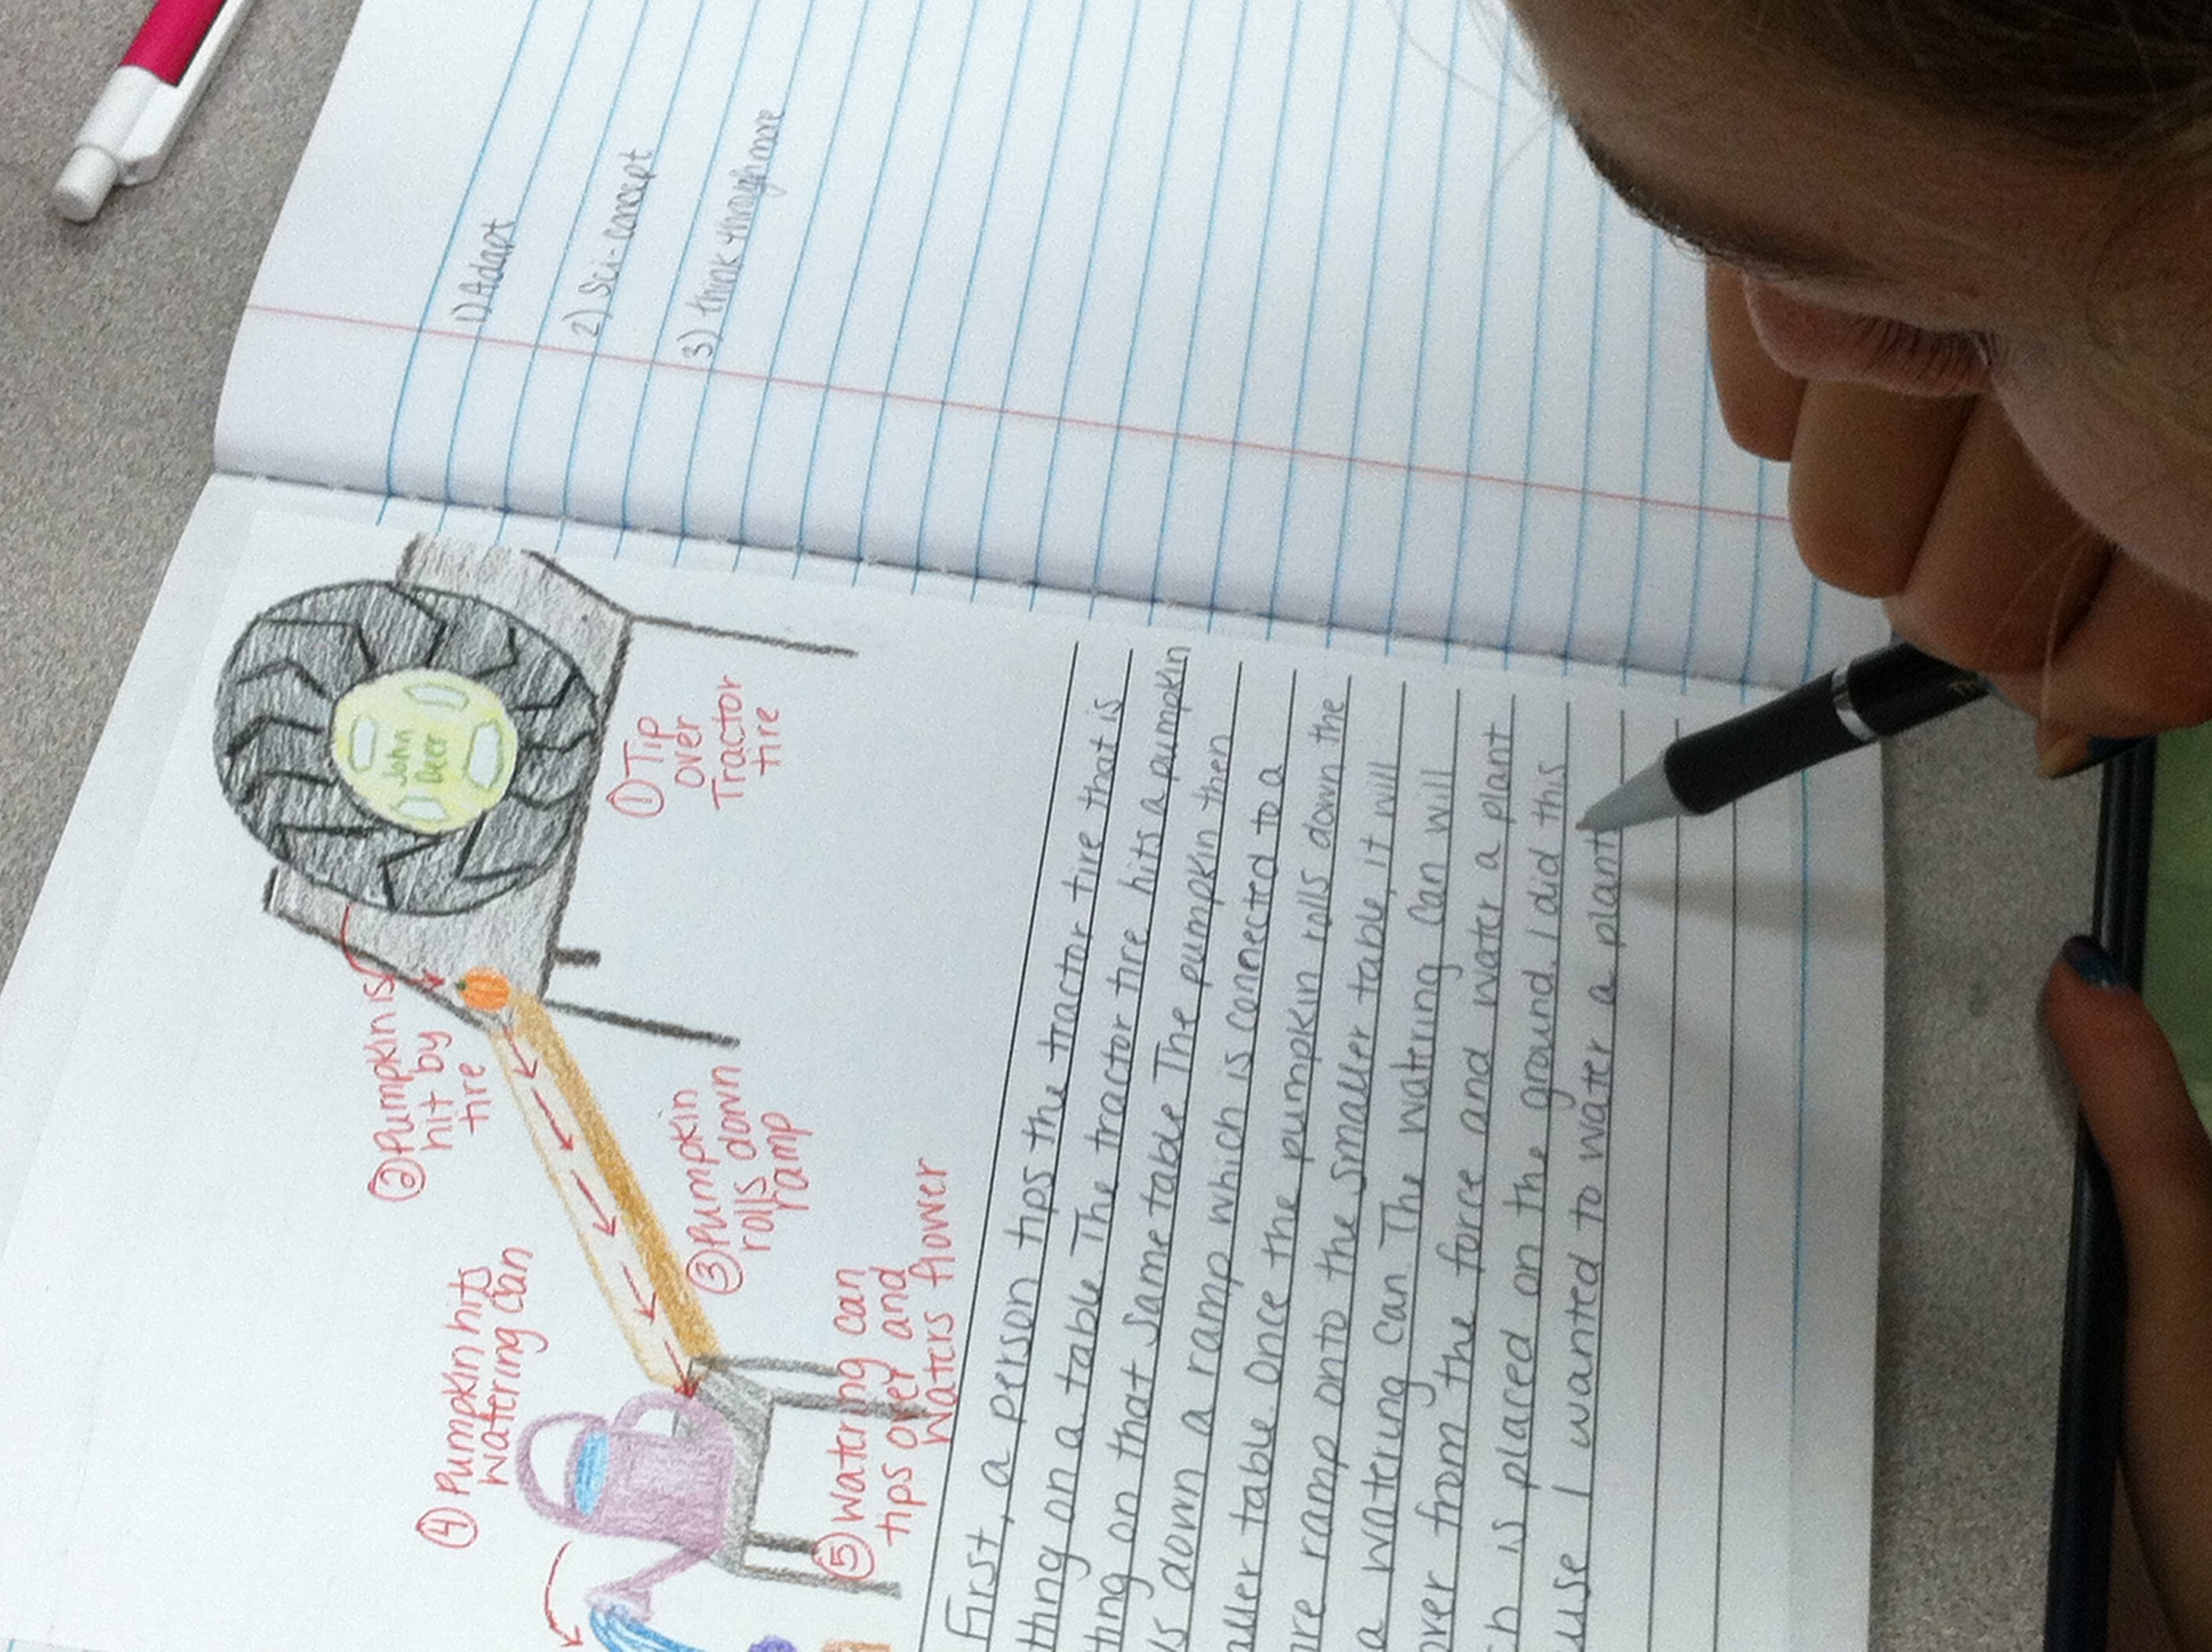 1) Adapt
2) Sci-concept
3) think through more
John
Deer
① Tip
over
Tractor
tire
② Pumpkin is
hit by
tire
③ Pumpkin
rolls down
ramp
④ Pumpkin hits
watering can
⑤ Watering can
tips over and
waters flower
First, a person tips the tractor tire that is
on a table. The tractor tire hits a pumpkin
on that same table. The pumpkin then
down a ramp which is connected to a
table. Once the pumpkin rolls down the
ramp onto the smaller table, it will
a watering can. The watering can will
from the force and water a plant
is placed on the ground. I did this
I wanted to water a plant